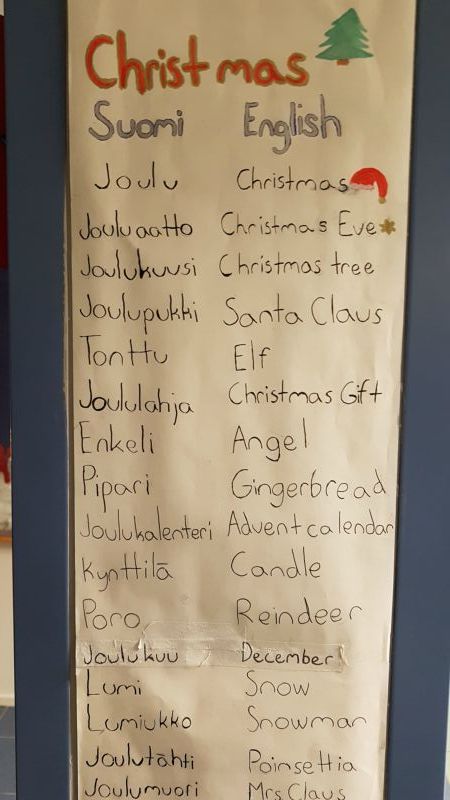 Christmas
Suomi English
Joulu Christmas
Jouluaatto Christmas Eve
Joulukuusi Christmas tree
Joulupukki Santa Claus
Tonttu Elf
Joululahja Christmas Gift
Enkeli Angel
Pipari Gingerbread
Joulukalenteri Advent calendar
Kynttilä Candle
Poro Reindeer
Joulukuu December
Lumi Snow
Lumiukko Snowman
Joulutähti Poinsettia
Joulumuori Mrs Claus